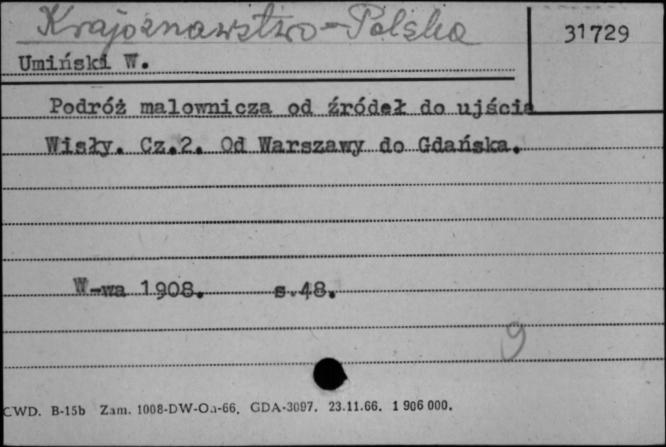 Krajoznawstwo-Polska
31729
Umiński W.
Podróż malownicza od źródeł do ujścia
Wisły. Cz.2. Od Warszawy do Gdańska.
W-wa 1908. s.48.
9
CWD. B-15b Zam. 1008-DW-Oa-66. GDA-3097. 23.11.66. 1 906 000.